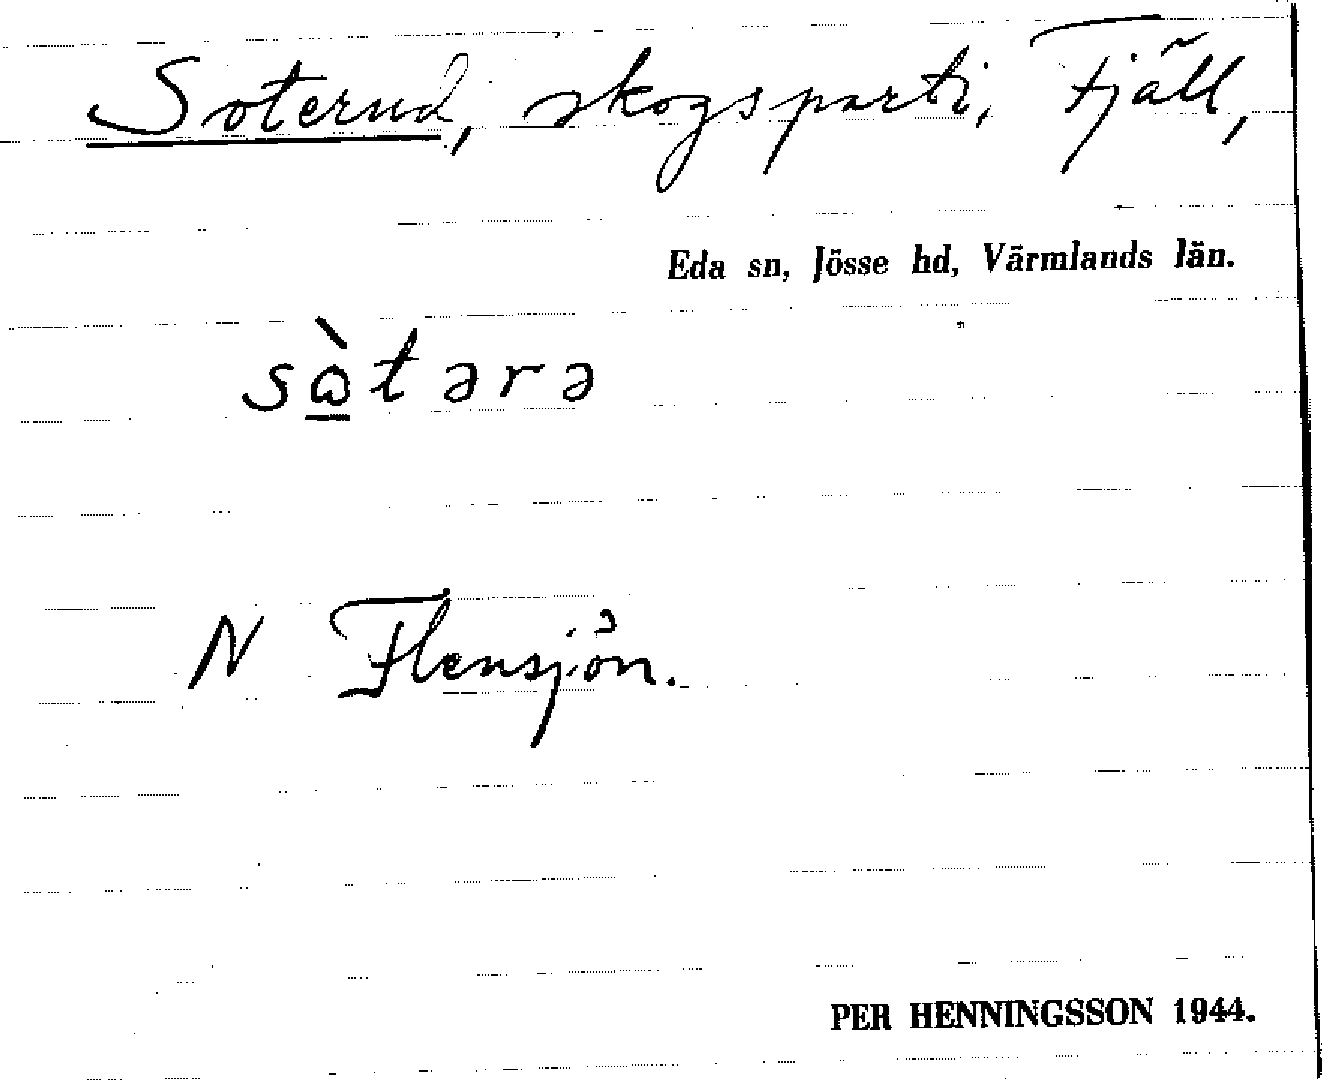 Soterud, skogsparti, Fjäll,
Eda sn, Jösse hd, Värmlands län.
sὼtərə
N Flensjön.
PER HENNINGSSON 1944.